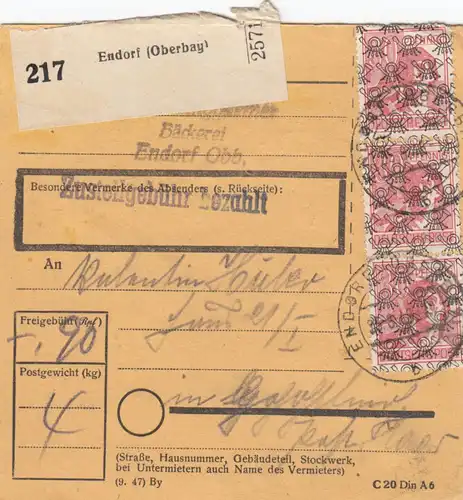 217
Endorf (Oberbay)
2571
Bäckerei
Endorf Obb.
Besondere Vermerke des Absenders (s. Rückseite):
Zustellgebühr bezahlt
An
Valentin Huber
Haus 21/I
in
Post Haar
Freigebühr (Rpf)
-.90
Postgewicht (kg)
4
(Straße, Hausnummer, Gebäudeteil, Stockwerk,
bei Untermietern auch Name des Vermieters)
(9. 47) By
C 20 Din A 6
ENDORF